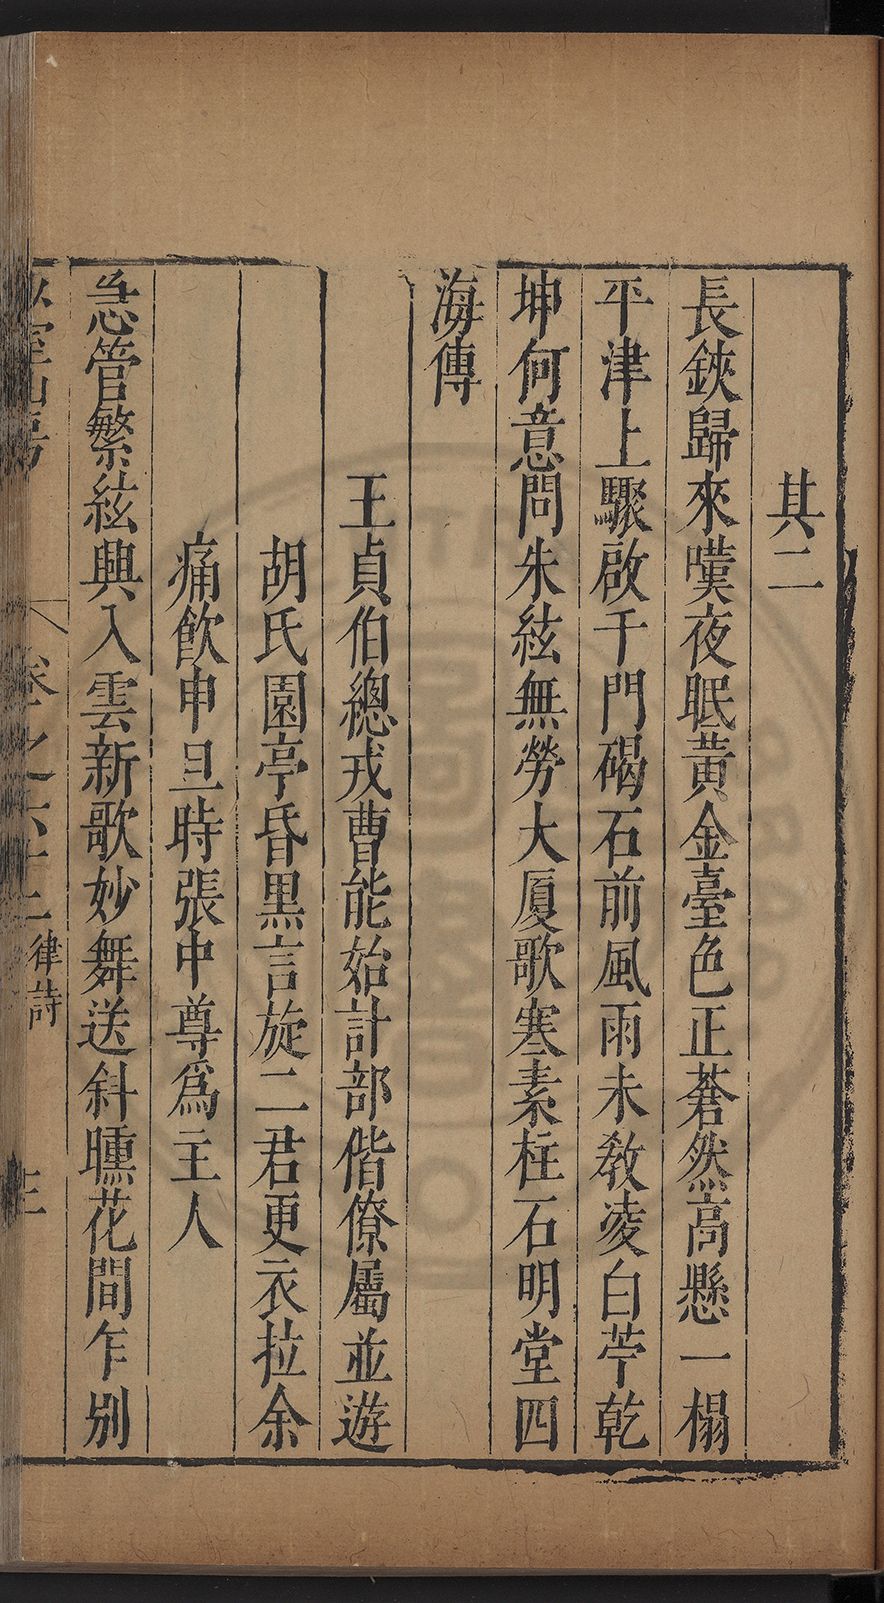 其二
長鋏歸來嘆夜眠黃金臺色正蒼然高懸一榻
平津上驟啟千門碣石前風雨未教凌白苧乾
坤何意問朱絃無勞大厦歌寒素柱石明堂四
海傳
王貞伯總戎曹能始計部偕僚屬並遊
胡氏園亭昏黒言旋二君更衣拉余
痛飲申旦時張中尊爲主人
急管繁絃興入雲新歌妙舞送斜曛花間乍別
山房
卷之六十二 律詩